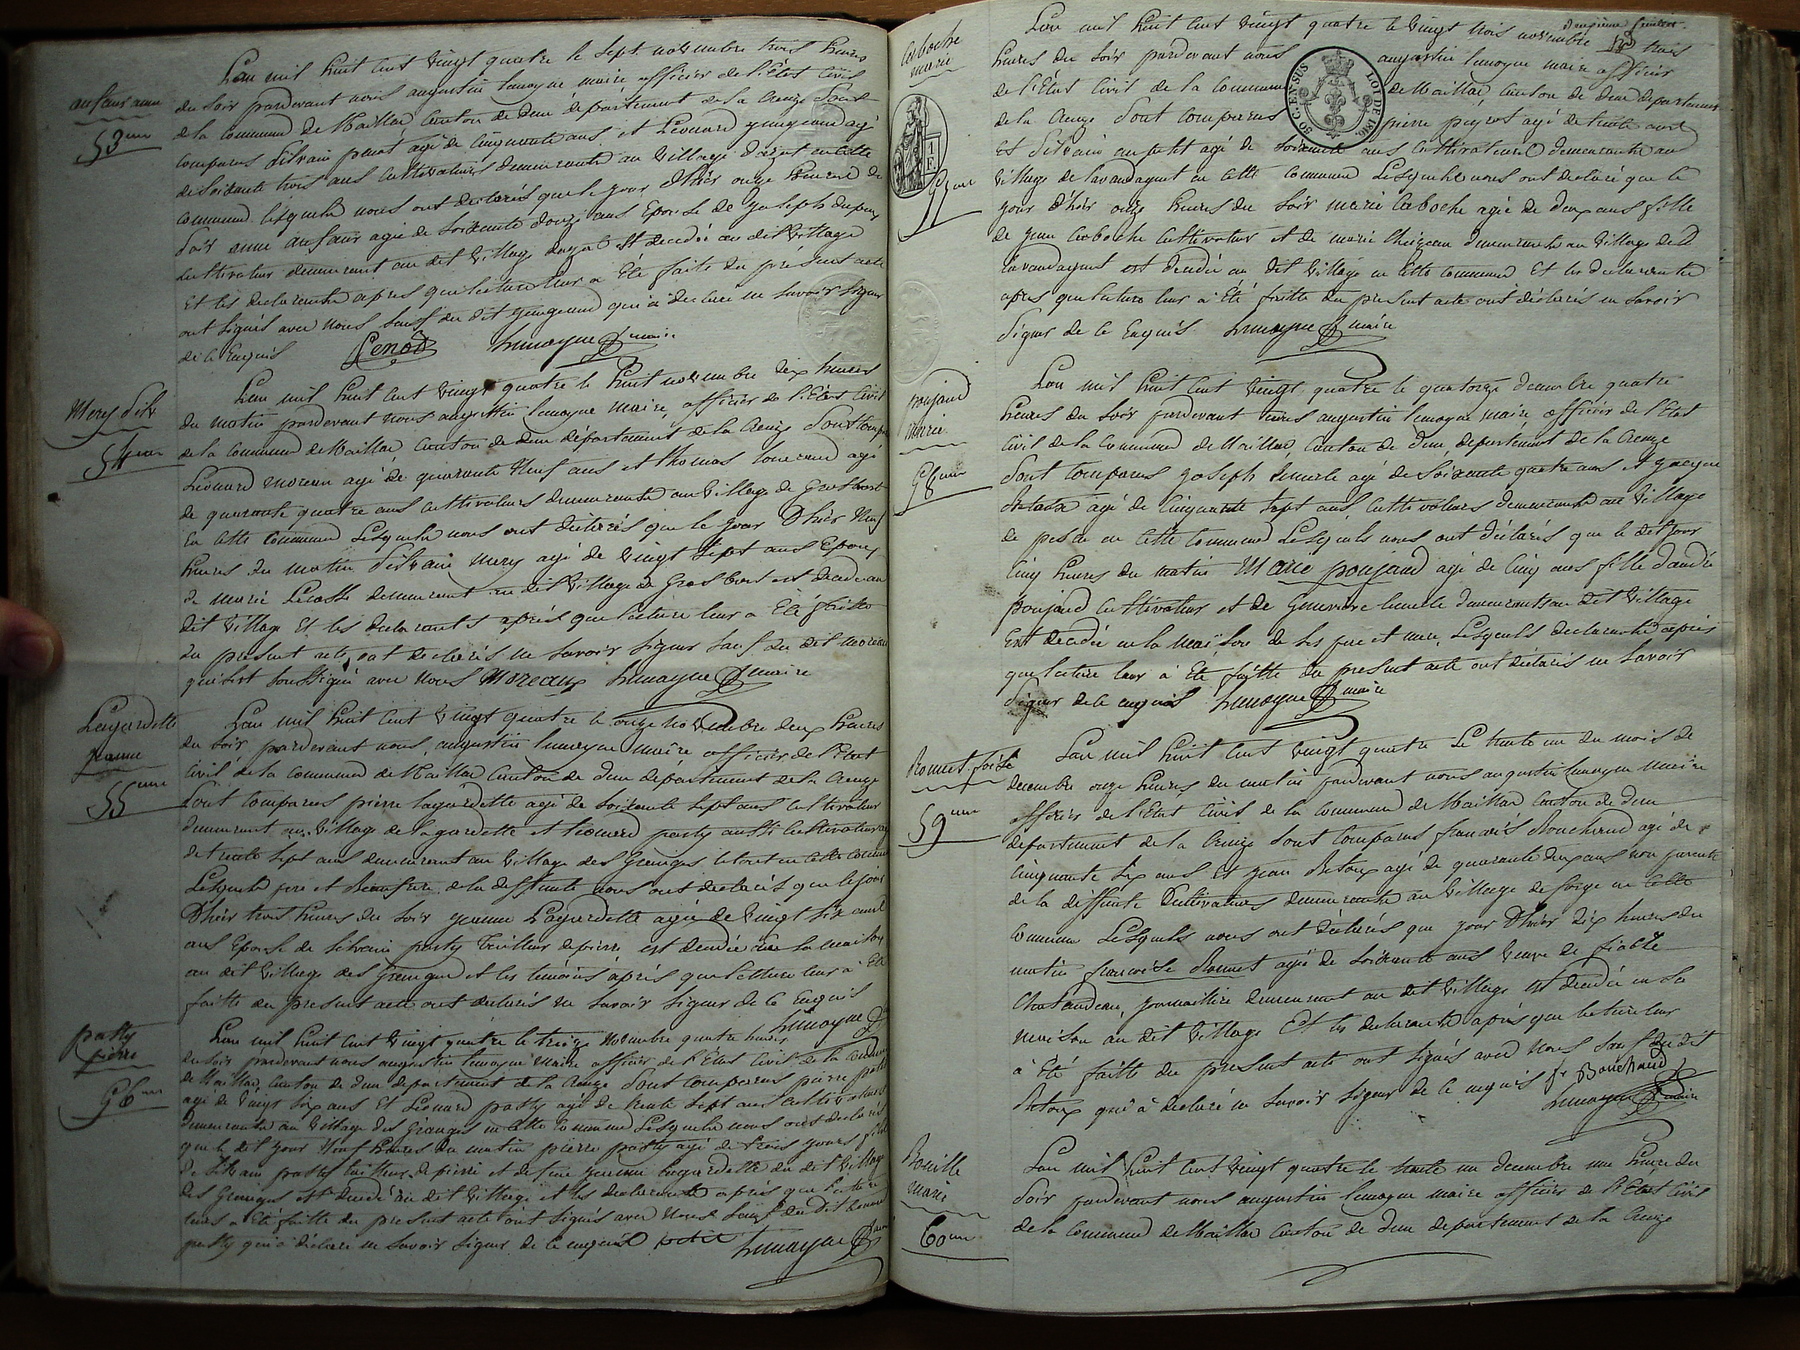 aufaur anne
53eme
L'an mil huit cent vingt quatre le sept novembre trois heures
du soir pardevant nous augustin lemoyne maire officier de l'Etat Civil
de la commune de Maillac, canton de dun departement de la Creuze Sont
comparus Silvain penot agé de cinquante ans et Léonard yungeaud agé
de soixante trois ans cultivateurs demeurants au village en cette
commune lesquels nous ont declarés que le jour d'hier onze heures du
soir anne aufaur agée de soixante douze ans Epouse de joseph dupuy
cultivateur demeurant au dit village est decedée au dit village
Et les declarants apres que lecture leur a Eté faite du présent acte
ont signés avec nous sauf du dit yungeaud qui a declaré ne savoir signer
de ce Enquis Penot Lemoyne maire
Mery Silv
54eme
L'an mil huit cent vingt quatre le huit novembre dix heures
du matin pardevant nous augustin lemoyne Maire, officier de l'Etat Civil
de la Commune de Maillac, Canton de dun département de la Creuze Sont Compa
Léonard moreau agé de quarante Neuf ans et thomas agé
de quarante quatre ans cultivateurs demeurants au village de Grosbost
en cette commune Lesquels nous ont déclarés que le jour D'hier Neuf
heures du matin Silvain mery agé de vingt sept ans Epoux
de marie demeurant au dit village de Grosbost est decedé au
dit village Et les declarants après que lecture leur a Eté faitte
du present acte ont declarés ne savoir signer sauf du dit moreau
qui s'est soussigné avec nous Moreaux Lemoyne maire
Lagardette
jeanne
55eme
L'an mil huit cent vingt quatre le onze novembre deux heures
du soir pardevant nous augustin lemoyne maire officier de l'Etat
civil de la commune de Maillac Canton de dun département de la Creuze
Sont comparus pierre lagardette agé de soixante sept ans cultivateur
demeurant au village de lagardette et léonard patty aussi cultivateur
de trente sept ans demeurant au village des Granges le tout en cette commune
Lesquels pere et beaufrere de la deffunte nous ont declarés que le jour
D'hier trois heures du soir jeanne Lagardette agée de vingt six
ans Epouse de silvain patty tailleur de pierre est decedée la maison
au dit village des Granges et les temoins après que lecture leur a Eté
faitte du present acte ont declarés ne savoir signer de ce Enquis
Lemoyne
patty
pierre
56eme
L'an mil huit cent vingt quatre le treize novembre quatre heures
du soir pardevant nous augustin lemoyne Maire officier de l'Etat Civil de la Commune
de Maillac, Canton de dun departement de la Creuze Sont Comparus pierre
agé de vingt six ans Et Léonard patty agé de trente sept ans cultivateurs
demeurants au village des Granges en cette Commune Lesquels nous ont declarés
que le dit jour Neuf heures du matin pierre patty agé de trois jours fils
de silvain patty tailleur de pierre et de jeanne Lagardette du dit village
des Granges est decedé au dit village et les declarants après que lecture
leur a Eté faitte du present acte ont signés avec nous sauf du dit Léonard
patty qui a declaré ne savoir signer de ce enquis Lemoyne
deuxieme feuillet
caboche
marie
57eme
L'an mil huit cent vingt quatre le vingt trois novembre trois
heures du soir pardevant nous augustin lemoyne maire officier
de l'Etat Civil de la commune de Maillac, Canton de dun departement
de la Creuze Sont comparus pierre agé de trente ans
et Silvain agé de soixante ans cultivateurs demeurants au
village de lavaudaguet en cette commune Lesquels nous ont declaré que le
jour d'hier onze heures du soir marie caboche agée de deux ans fille
de jean caboche cultivateur et de marie demeurants au village de
lavaudaguet est decedée au dit village en cette commune Et les declarants
apres que lecture leur a Eté faitte du present acte ont déclarés ne savoir
signer de ce Enquis Lemoyne maire
SO. C. EN SUS LOI DE 1816
poujaud
marie
58eme
L'an mil huit cent vingt quatre le quatorze decembre quatre
heures du soir pardevant nous augustin lemoyne maire officier de l'Etat
civil de la Commune de Maillac, Canton de dun, departement de la Creuze
Sont comparus joseph agé de soixante quatre ans et
agé de cinquante sept ans cultivateurs demeurants au village
de en cette commune Lesquels nous ont déclarés que le dit jour
cinq heures du matin Marie poujaud agée de cinq ans fille d'andré
poujaud cultivateur et de Genevieve demeurants au dit village
Est decedée en la Maison de ses pere et mere, Lesquels declarants après
que lecture leur a Eté faitte du present acte ont declarés ne savoir
signer de ce enquis Lemoyne maire
59eme
L'an mil huit cent vingt quatre Le trente un du mois de
decembre onze heures du matin pardevant nous augustin lemoyne maire
officier de l'Etat Civil de la Commune de Maillac Canton de dun
departement de la Creuze Sont comparus françois Bouchaud agé de
cinquante six ans Et jean agé de quarante deux ans non parents
de la deffunte Cultivateurs demeurants au village de forge en cette
commune Lesquels nous ont déclarés que jour D'hier dix heures du
matin françoise agée de soixante ans veuve de
Chatandeau, journaliere demeurant au dit village est decedée en sa
maison au dit village Et les declarants après que lecture leur
a Eté faitte du present acte ont signés avec nous sauf du dit
qui a declaré ne savoir signer de ce enquis fr Bouchaud
Lemoyne maire
marie
60eme
L'an mil huit cent vingt quatre le trente un decembre une heure du
soir pardevant nous augustin lemoyne maire officier de l'Etat Civil
de la Commune de Maillac Canton de dun departement de la Creuze